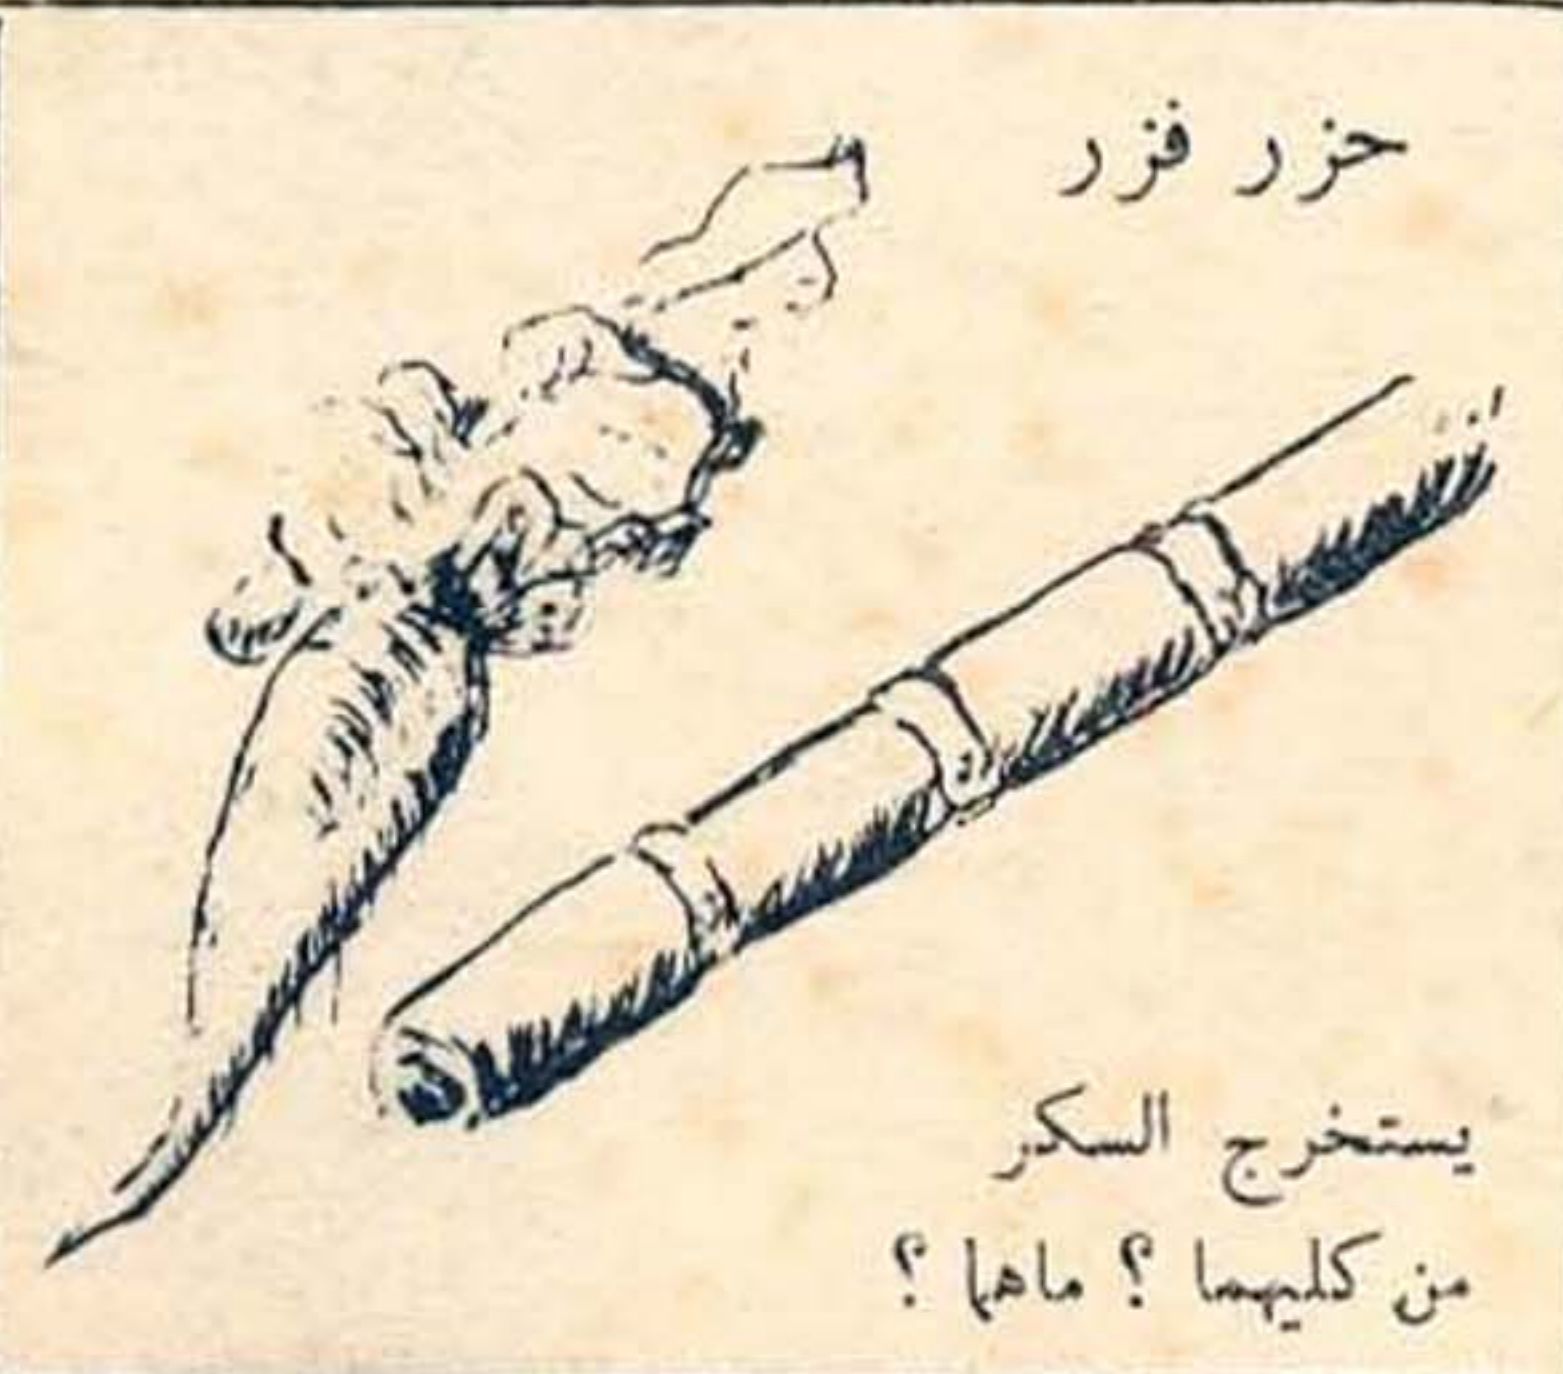 حزر فزر
يستخرج السكر
من كليهما ؟ ماهما ؟